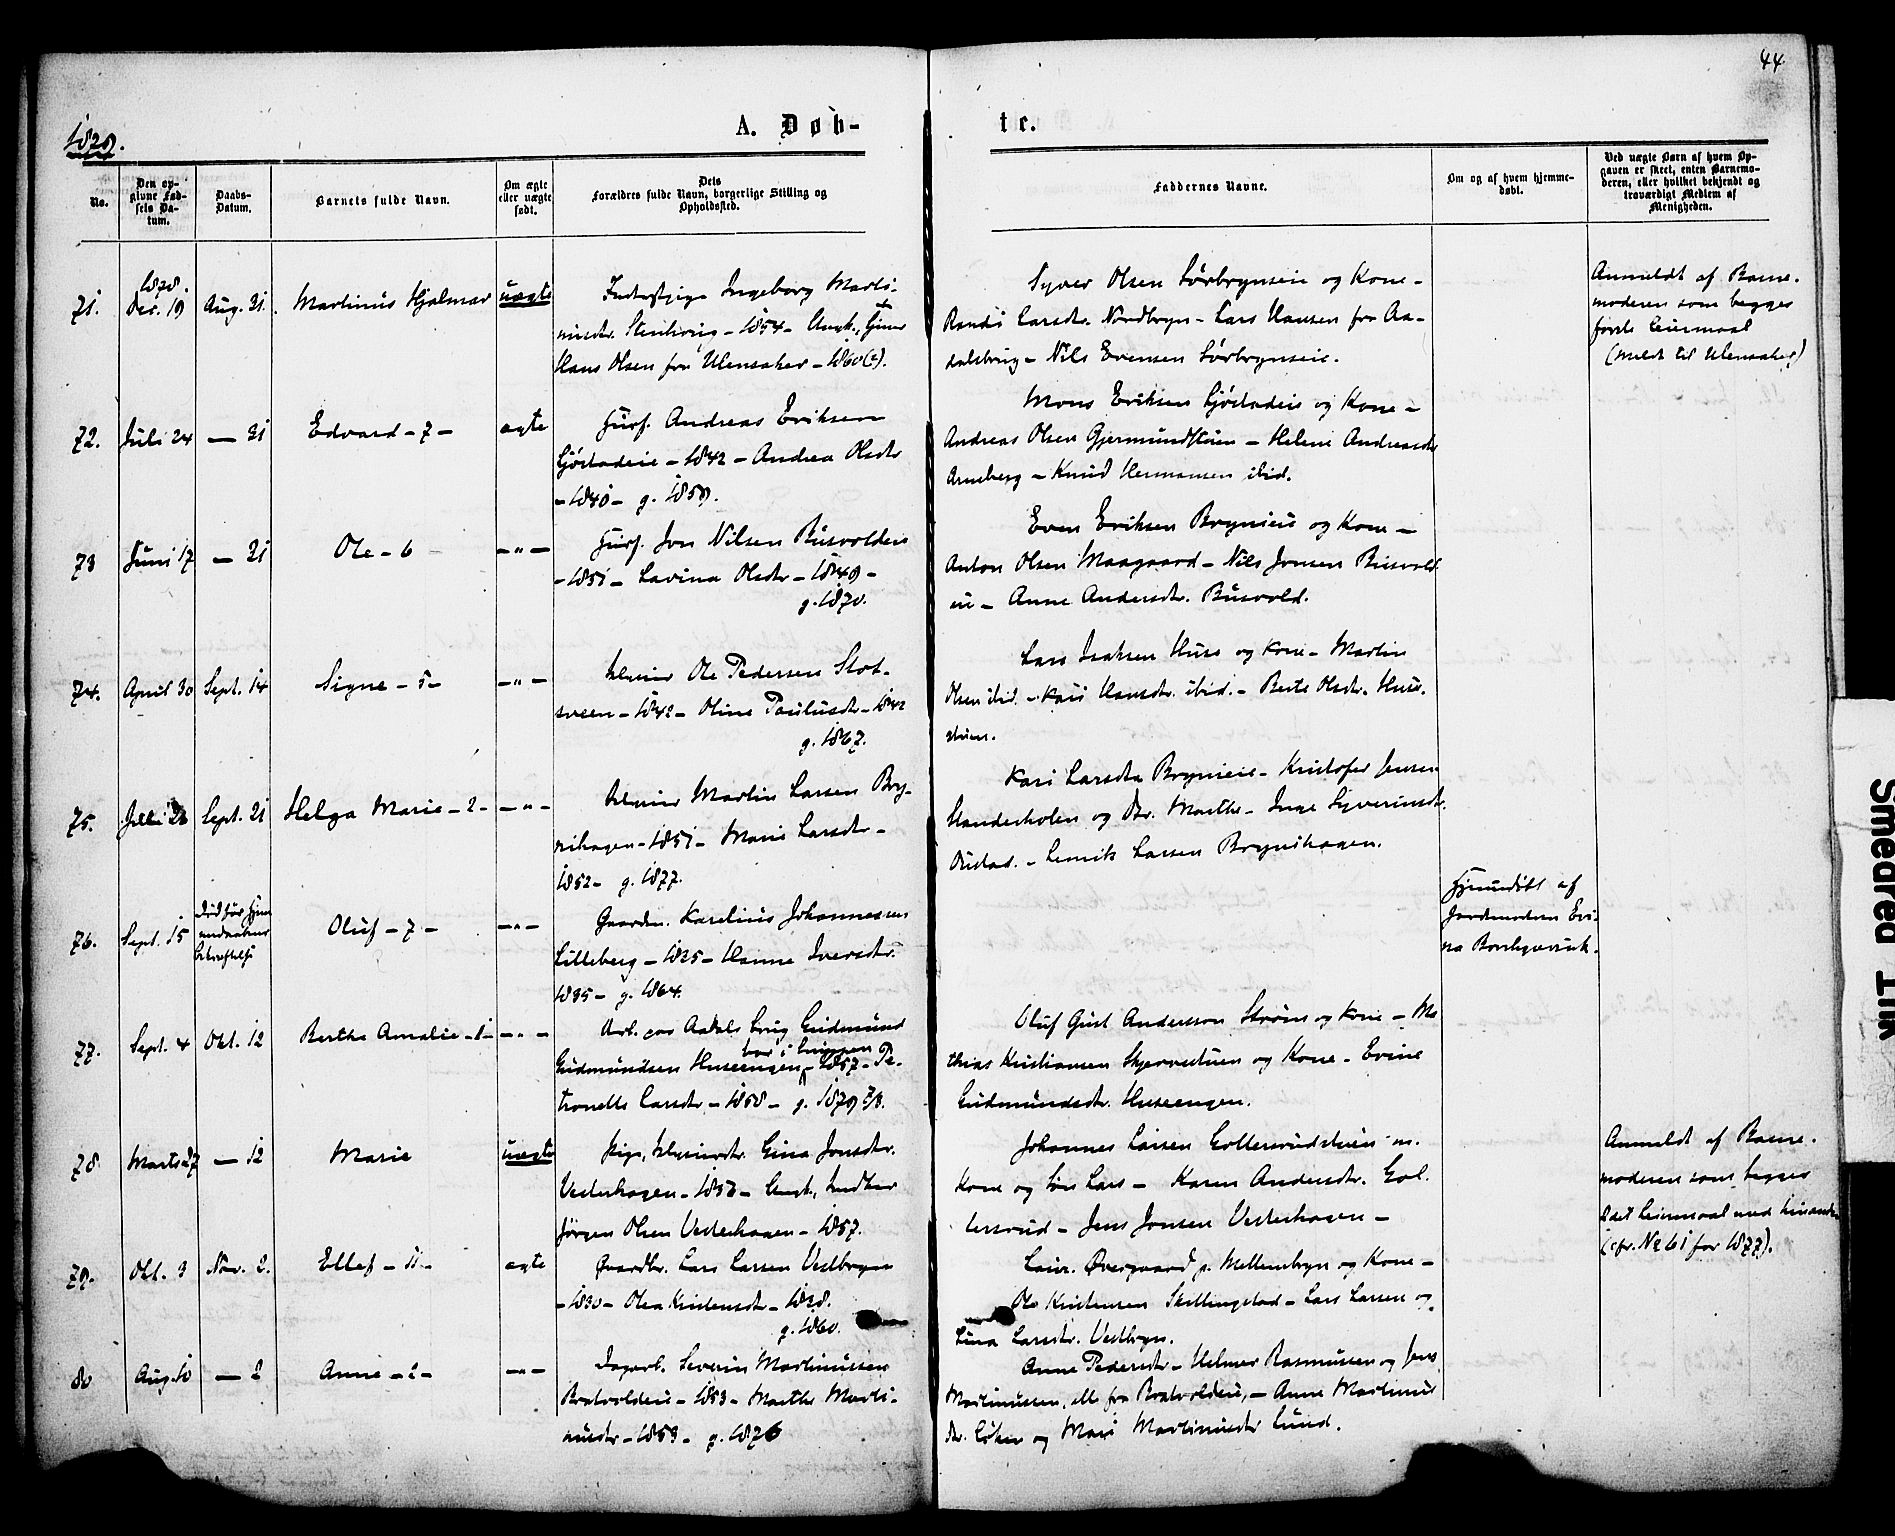 44
1879.
A. Døb-
te.
No.
Den op-
givne Fød-
sels Da-
tum.
Daabs-
Datum.
Barnets fulde Navn.
Om ægte
eller uægte
født.
Dets
Forældres fulde Navn, borgerlige Stilling og
Opholdssted.
Faddernes Navne.
Om og af hvem hjemme-
døbt.
Ved uægte Børn af hvem Op-
gaven er skeet, enten Barnemo-
deren, eller hvilket bekjendt og
troværdigt Medlem af
Menigheden.
71.
1878.
Dec. 19
Aug. 31.
Martinus Hjalmar
uægte
Ingeborg Marti-
nusdtr. - 1854 - Ungk.,
Hans Olsen fra Ullensaker - 1860(?).
Syver Olsen Sørbryneie og Kone -
Randi Larsdtr. Nordbryn - Lars Hansen fra Aa-
dalsbrug - Nils Evensen Sørbryneie.
Anmeldt af Barne-
moderen som begges
første Leiermaal
(meldt til Ullensaker)
72.
Juli 24
— 31
Edvard - 7 -
ægte
Husf. Andreas Eriksen
Gjøstadeie - 1842 - Andrea Olsdtr
- 1840 - g. 1859.
Mons Eriksen Gjøstadeie og Kone -
Andreas Olsen Gjermundstuen - Helene Andreasdtr
Arneberg - Knud Hermansen ibid.
73
Juni 17
— 31
Ole - 6
— " —
Husf. Jon Nilsen Busvoldeie
- 1851 - Lavina Olsdtr - 1849 -
g. 1870.
Even Eriksen Bryneie og Kone -
Anton Olsen Maagaard - Nils Jonsen Busvold-
eie - Anne Andersdtr. Busvold.
74.
April 30
Sept. 14
Signe - 5 -
— " —
Ole Pedersen Slot-
sveen - 1842 - Oline Paulusdtr - 1842
g. 1867.
Lars Isaksen Huse og Kone - Martin
Olsen ibid. - Kari Hansdtr. ibid. - Berte Olsdtr. Huse-
stuen.
75.
Juli 28
Sept. 21
Helga Marie - 2 -
— " —
Martin Larsen Bry-
nihagen - 1851 - Marie Larsdtr -
1852 - g. 1877.
Kari Larsdtr Bryneie - Kristofer Jensen
og Dtr. Marthe - Inge Syverinsdtr.
- Larsen Brynihagen.
76.
Sept. 15
død før
Oluf - 7 -
— " —
Gaardm. Karelius Johannessen
Lilleberg - 1825 - Hanne Iversdtr.
1835 - g. 1864.
Hjemmedøbt af
Jordmoderen Evi-
na
77.
Sept. 4
Okt. 12
Berthe Amalie - 1 -
— " —
Arb. paa Aadals brug Gudmund
bor i
Gudmundsen Huseengen - 1857 - Pe-
tronelle Larsdtr - 1858 - g. 1879
Oluf Gust Andersson Strøm og Kone - Ma-
thias Kristiansen Skjervestuen og Kone - Evine
Gudmundsdtr. Huseengen.
78
Marts 27
— 12
Marie
uægte
Pige, Gina Jonsdtr.
Vesterhagen - 1853 - Ungk.,
Jørgen Olsen Vesterhagen - 1857.
Johannes Larsen Gollersrudstuen m.
Kone og Søn Lars - Karen Andersdtr. Gol-
lersrud - Jens Jonsen Vesterhagen -
Anmeldt af Barne-
moderen som begges
2det Leiermaal med hinanden
(cfr. No 61 for 1877).
79.
Okt. 3
Nov. 2.
Ellef - 11 -
ægte
Gaardbr. Lars Larsen Vestbryn
- 1830 - Olea Kristensdtr - 1838.
g. 1860.
Laur. Øvergaard p. Mellembryn og Kone -
Ole Kristensen Skillingstad - Lars Larsen og
Lina Larsdtr. Vestbryn.
80
Aug. 10
— 2
Anne - 2 -
— " —
Dagarb. Severin Martinussen
Bratvoldeie - 1853 - Marthe Marti-
nusdtr - 1853 - g. 1876
Anne Pedersdtr - Helmer Rasmussen og Jens
Martinussen, alle fra Bratvoldeie, - Anne Martinus-
dtr. Løken og Mari Martinusdtr Lund.
Smeared Ink